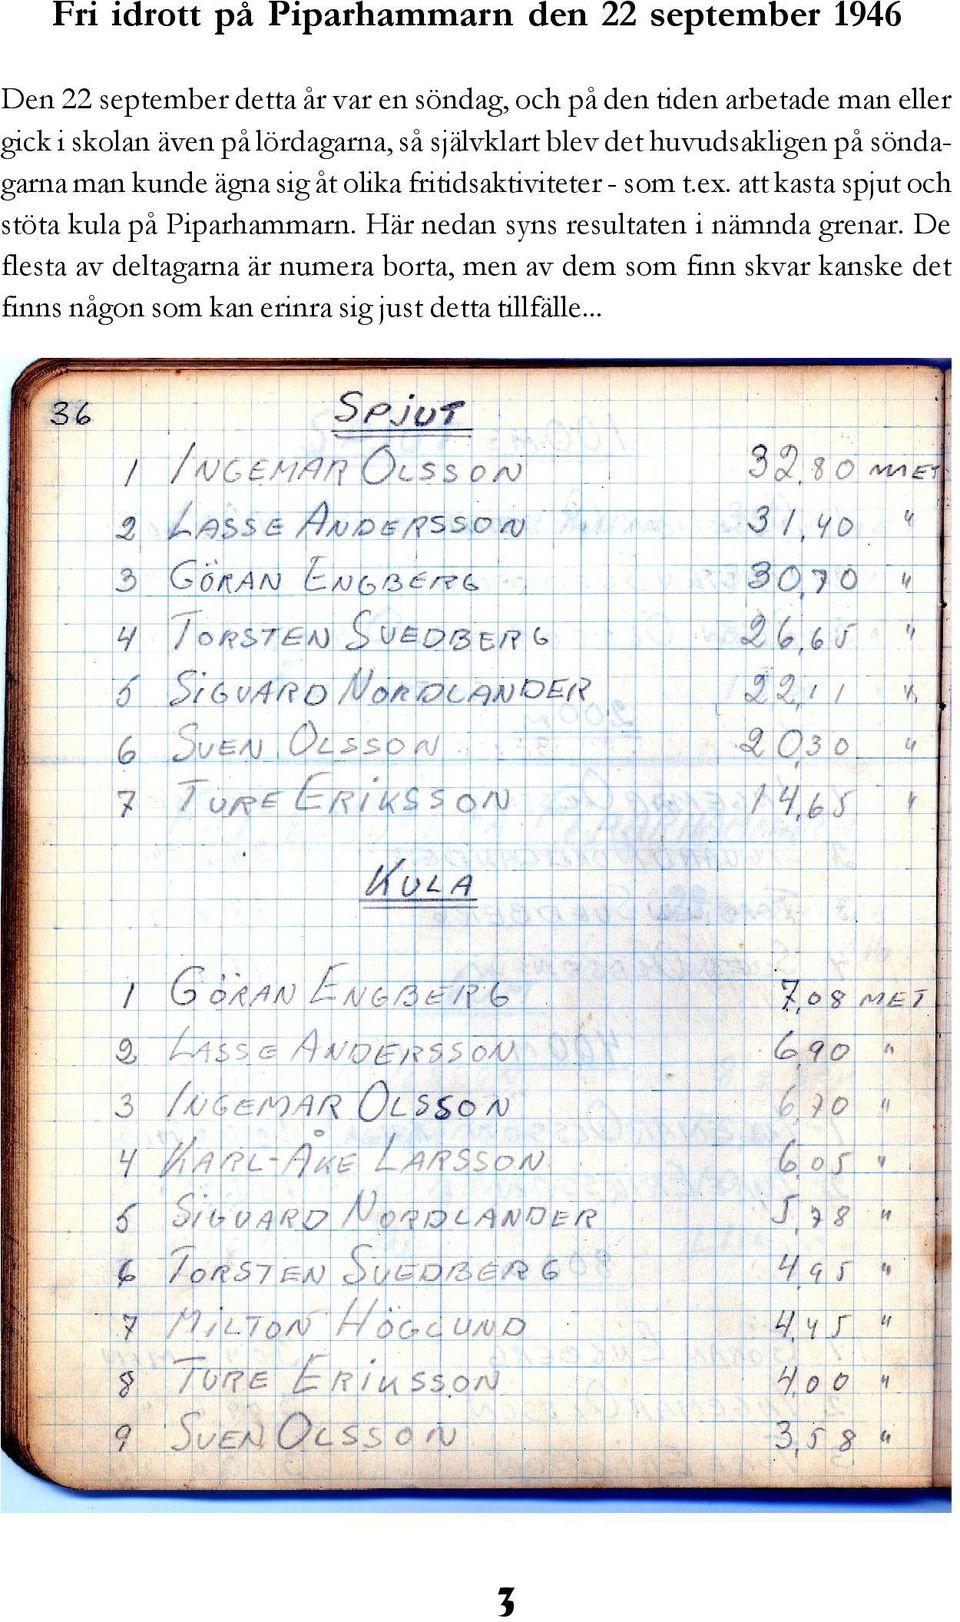 Fri idrott på Piparhammarn den 22 september 1946
Den 22 september detta år var en söndag, och på den tiden arbetade man eller
gick i skolan även på lördagarna, så självklart blev det huvudsakligen på sönda-
garna man kunde ägna sig åt olika fritidsaktiviteter - som t.ex. att kasta spjut och
stöta kula på Piparhammarn. Här nedan syns resultaten i nämnda grenar. De
flesta av deltagarna är numera borta, men av dem som finn skvar kanske det
finns någon som kan erinra sig just detta tillfälle...
36 SPJUT
1 INGEMAR OLSSON 32,80 MET
2 LASSE ANDERSSON 31,40 "
3 GÖRAN ENGBERG 30,70 "
4 TORSTEN SVEDBERG 26,65 "
5 SIGVARD NORDLANDER 22,11 "
6 SVEN OLSSON 20,30 "
7 TURE ERIKSSON 14,65 "
KULA
1 GÖRAN ENGBERG 7,08 MET
2 LASSE ANDERSSON 6,90 "
3 INGEMAR OLSSON 6,70 "
4 KARL-ÅKE LARSSON 6,05 "
5 SIGVARD NORDLANDER 5,78 "
6 TORSTEN SVEDBERG 4,95 "
7 MILTON HÖGLUND 4,45 "
8 TURE ERIKSSON 4,00 "
9 SVEN OLSSON 3,58 "
3